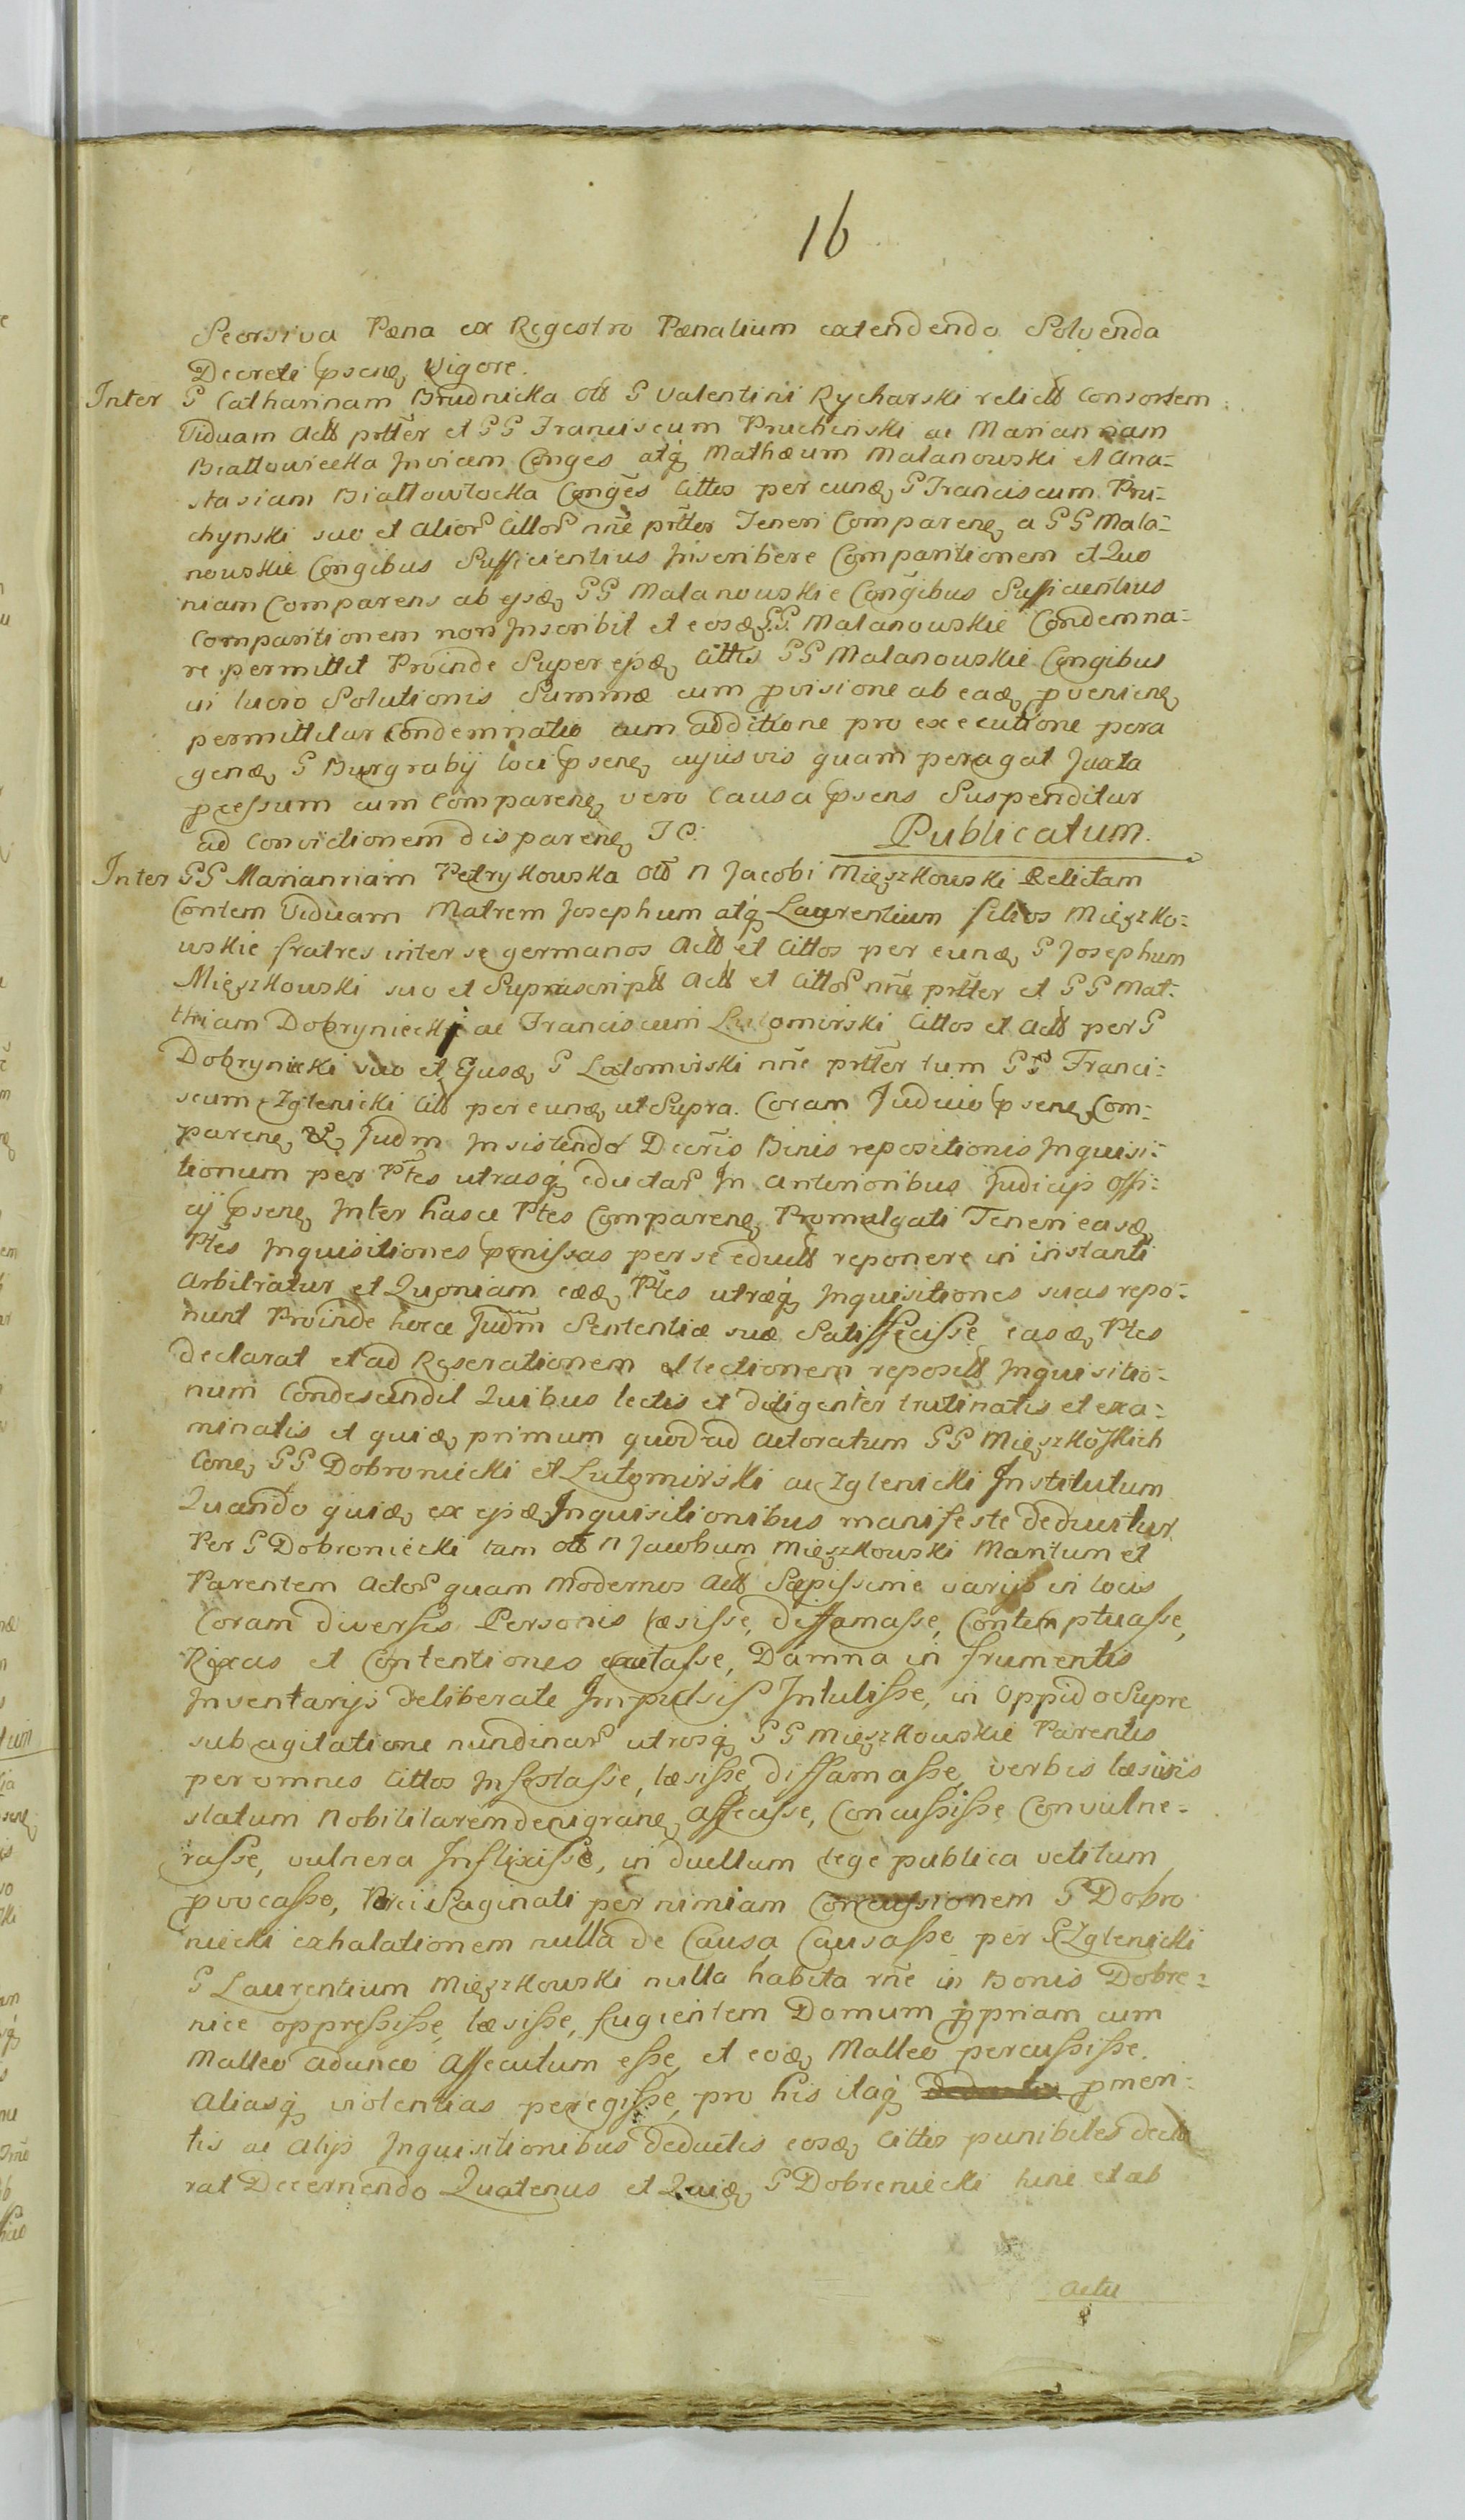 16
Seorsiva Pæna ex Regestro Pænalium extendendo Solvenda
Decreti pseñ Vigore.
Inter G Catharinam Brudnicka olt G Valentini Rycharski relict Consortem
Viduam Act prtter et GG Franciscum Pruchinski ac Mariannam
Białłowiecka Invicem Conges atq Mathæum Malanowski et Ana-
stasiam Białłowłocka Conges Cittos per eund G Franciscum Pru-
chynski suo et alior Cittor nne prtter Teneri Comparen a GG Mala-
nowskie Congibus Sufficientius Inscribere Comparitionem et Quo
niam Comparens ab ejsd GG Malanowskie Congibus Sufficientius
Comparitionem non Inscribit et eosd GG Malanowskie Condemna-
re permittit Proinde Super ejsd Cittis GG Malanowskie Congibus
in lucro Solutionis Summæ cum pvisione ab ead pvenien
permittitur Condemnatio cum additione pro executione pera
gend G Burgrabij loci psen cujusvis quam peragat Juxta
pcessum cum Comparen vero Causa psens Suspenditur
ad Convictionem disparen IC. Publicatum.
Inter GG Mariannam Petrykowska olt N Jacobi Mięszkowski Relictam
Contem Viduam Matrem Josephum atq Laurentium filios Mięszko-
wskie fratres inter se germanos Act et Cittos per eund G Josephum
Mięszkowski suo et Suprascript Act et Cittor nne prtter et GG Mat-
thiam Dobryniecki ac Franciscum Lutomirski Cittos et Act per G
Dobryniecki suo et Ejusd G Lutomirski nne prtter tum GG Franci-
scum Zglenicki Citt per eund ut Supra. Coram Judicio psen Com-
paren & Judm Insistendo Decris Binis repositionis Inquisi-
tionum per Ptes utrasq eductar In anterioribus Judicijs Offi-
cij psen Inter hasce Ptes Comparen Promulgati Teneri easd
Ptes Inquisitiones pmissas per se educt reponere in instanti
Arbitratur et Quoniam eæd Ptes utræq Inquisitiones suas repo-
nunt Proinde hocce Judm Sententiæ suæ Satisfecisse easd Ptes
declarat et ad Reserationem et lectionem reposit Inquisitio-
num Condescendit Quibus lectis et diligenter trutinatis et exa-
minatis et quid primum quod ad Actoratum GG Mięszkoskich
Con GG Dobroniecki et Lutomirski ac Zglenicki Institutum
Quando quid ex ejsd Inquisitionibus manifeste deducitur
Per G Dobroniecki tam olt N Jacobum Mięszkowski Maritum et
Parentem Actor quam Modernos Act Sæpissime varijs in locis
Coram diversis Personis læsisse, diffamasse, Contemptuasse,
Rixas et Contentiones excitasse, Damna in frumentis
Inventarijs deliberate Impulsis Intulisse, in Oppido Supre
sub agitatione nundinar utrosq GG Mięszkowskie Parentis
per omnes Cittos Infestasse, læsisse, diffamasse, verbis læsivis
statum Nobilitarem denigran affecisse, Concussisse Convulne-
rasse, vulnera Inflixisse, in duellum lege publica vetitum
pvocasse, Porci Saginati per nimiam Concussionem G Dobro
niecki exhalationem nulla de Causa Causasse per G Zglenicki
G Laurentium Mięszkowski nulla habita rne in Bonis Dobre-
nice oppressisse, læsisse, fugientem Domum ppriam cum
Malleo adunco Assecutum esse, et eod Malleo percussisse.
Aliasq violentias peregisse, pro his itaq pmeri-
tis ac Alijs Inquisitionibus deductis eosd Cittos punibiles decla
rat Decernendo Quatenus et Quid G Dobreniecki hinc et ab
actu